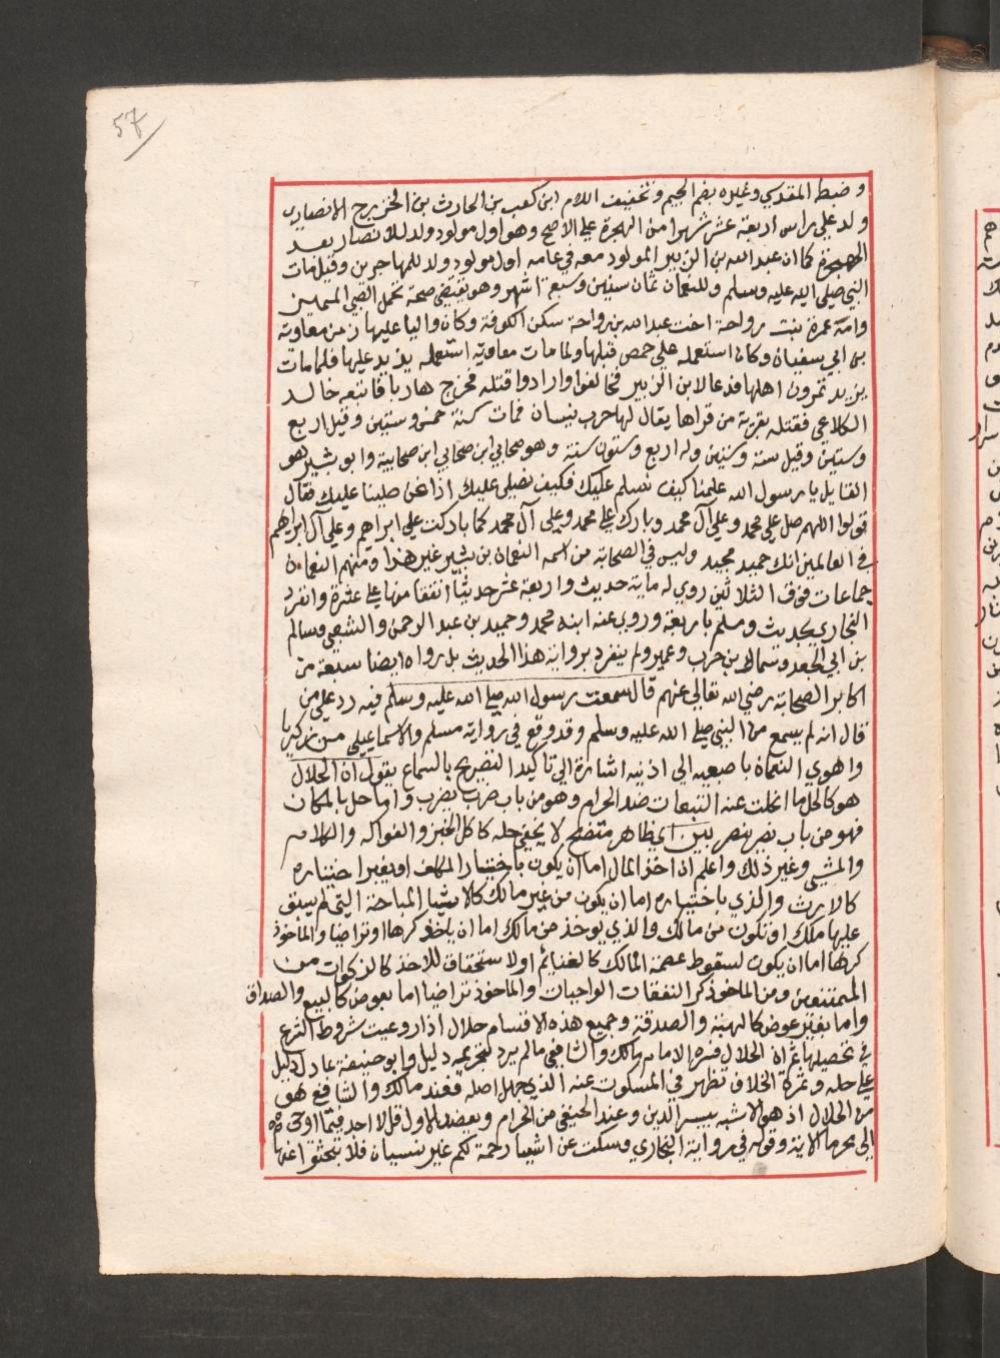 57
وضبط المقدسي وغيره بضم الجيم وتخفيف اللام ابن كعب بن الحارث بن الخزرج الانصاري
ولد علي راس اربعة عشر شهرا من الهجرة علي الاصح وهو اول مولود ولد للانصار بعد
الهجرة كما ان عبد الله بن الزبير المولود معه في عامه اول مولود ولد للمهاجرين وقيل مات
النبي صلي الله عليه وسلم وللنعمان ثمان سنين وسبعة اشهر وهو يقتضي صحة تحمل الصبي المميز
وامه عمرة بنت رواحة اخت عبد الله بن رواحة سكن الكوفة وكان واليا عليها زمن معاوية
بن ابي سفيان وكان استعمله علي حمص قبلها ولما مات معاوية استعمله يزيد عليها فلما مات
يزيد تمرون اهلها فدعا لابن الزبير فخالفوا وارادوا قتله فخرج هاربا فاتبعه خالد
الكلاعي فقتله بقرية من قراها يقال لها حرب نيسان فمات سنة خمس وستين وقيل اربع
وستين وقيل ستة وستين وله اربع وستون سنة وهو صحابي ابن صحابي ابن صحابية وابو بشير هو
القايل يا رسول الله علمنا كيف نسلم عليك فكيف نصلي عليك اذا نحن صلينا عليك فقال
قولوا اللهم صل علي محمد وعلي آل محمد وبارك علي محمد وعلي آل محمد كما باركت علي ابراهيم وعلي آل ابراهيم
في العالمين انك حميد مجيد وليس في الصحابة من اسمه النعمان بن بشير غير هذا ومنهم النعمان
جماعات فوق الثلاثين روي له ماية حديث واربعة عشر حديثا اتفقا منها علي عشرة وانفرد
البخاري بحديث ومسلم باربعة وروي عنه ابنه محمد وحميد بن عبد الرحمن والشعبي وسالم
بن ابي الجعد وسماك بن حرب وغيرهم ولم ينفرد برواية هذا الحديث بل رواه ايضا سبعة من
اكابر الصحابة رضي الله تعالي عنهم قال سمعت رسول الله صلي الله عليه وسلم فيه رد علي من
قال انه لم يسمع من النبي صلي الله عليه وسلم وقد وقع في رواية مسلم والاسماعيلي من زكريا
واهوي النعمان باصبعيه الي اذنيه اشارة الي تاكيد التصريح بالسماع يقول ان الحلال
هو كالحل ما انحلت عنه التبعات ضد الحرام وهو من باب ضرب يضرب واما حل بالمكان
فهو من باب نصر ينصر بين اي ظاهر متضح لا يخفي حله كاكل الخبز والفواكه والكلام
والمشي وغير ذلك واعلم ان اخذ المال اما ان يكون باختيار المكلف او بغير اختياره
كالارث والذي باختياره اما ان يكون من غير مالك كالاشيا المباحة التي لم يسبق
عليها ملك او تكون من مالك والذي يوخذ من مالك اما ان ياخذ كرها او تراضيا والماخوذ
كرها اما ان يكون لسقوط عصمة المالك كالغنائم او لاستحقاق للاخذ كالزكوات من
الممتنعين ومن الماخوذ كرا النفقات الواجبات والماخوذ تراضيا اما بعوض كالبيع والصداق
واما بغير عوض كالهبة والصدقة وجميع هذه الاقسام حلال اذا روعيت شروط الشرع
في تحصيلها ثم ان الحلال فسره الامام مالك والشافعي مالم يرد بتحريمه دليل وابو حنيفة ما دل دليل
علي حله وثمرة الخلاف تظهر في المسكوت عنه الذي جهل اصله فعند مالك والشافع هو
من الحلال اذ هو الاشبه بيسر الدين وعند الحنفي من الحرام ويعضد للاول قل لا اجد فيما اوحي
الي محرما الاية وقوله في رواية البخاري وسكت عن اشيا رحمة لكم غير نسيان فلا تبحثوا عنها